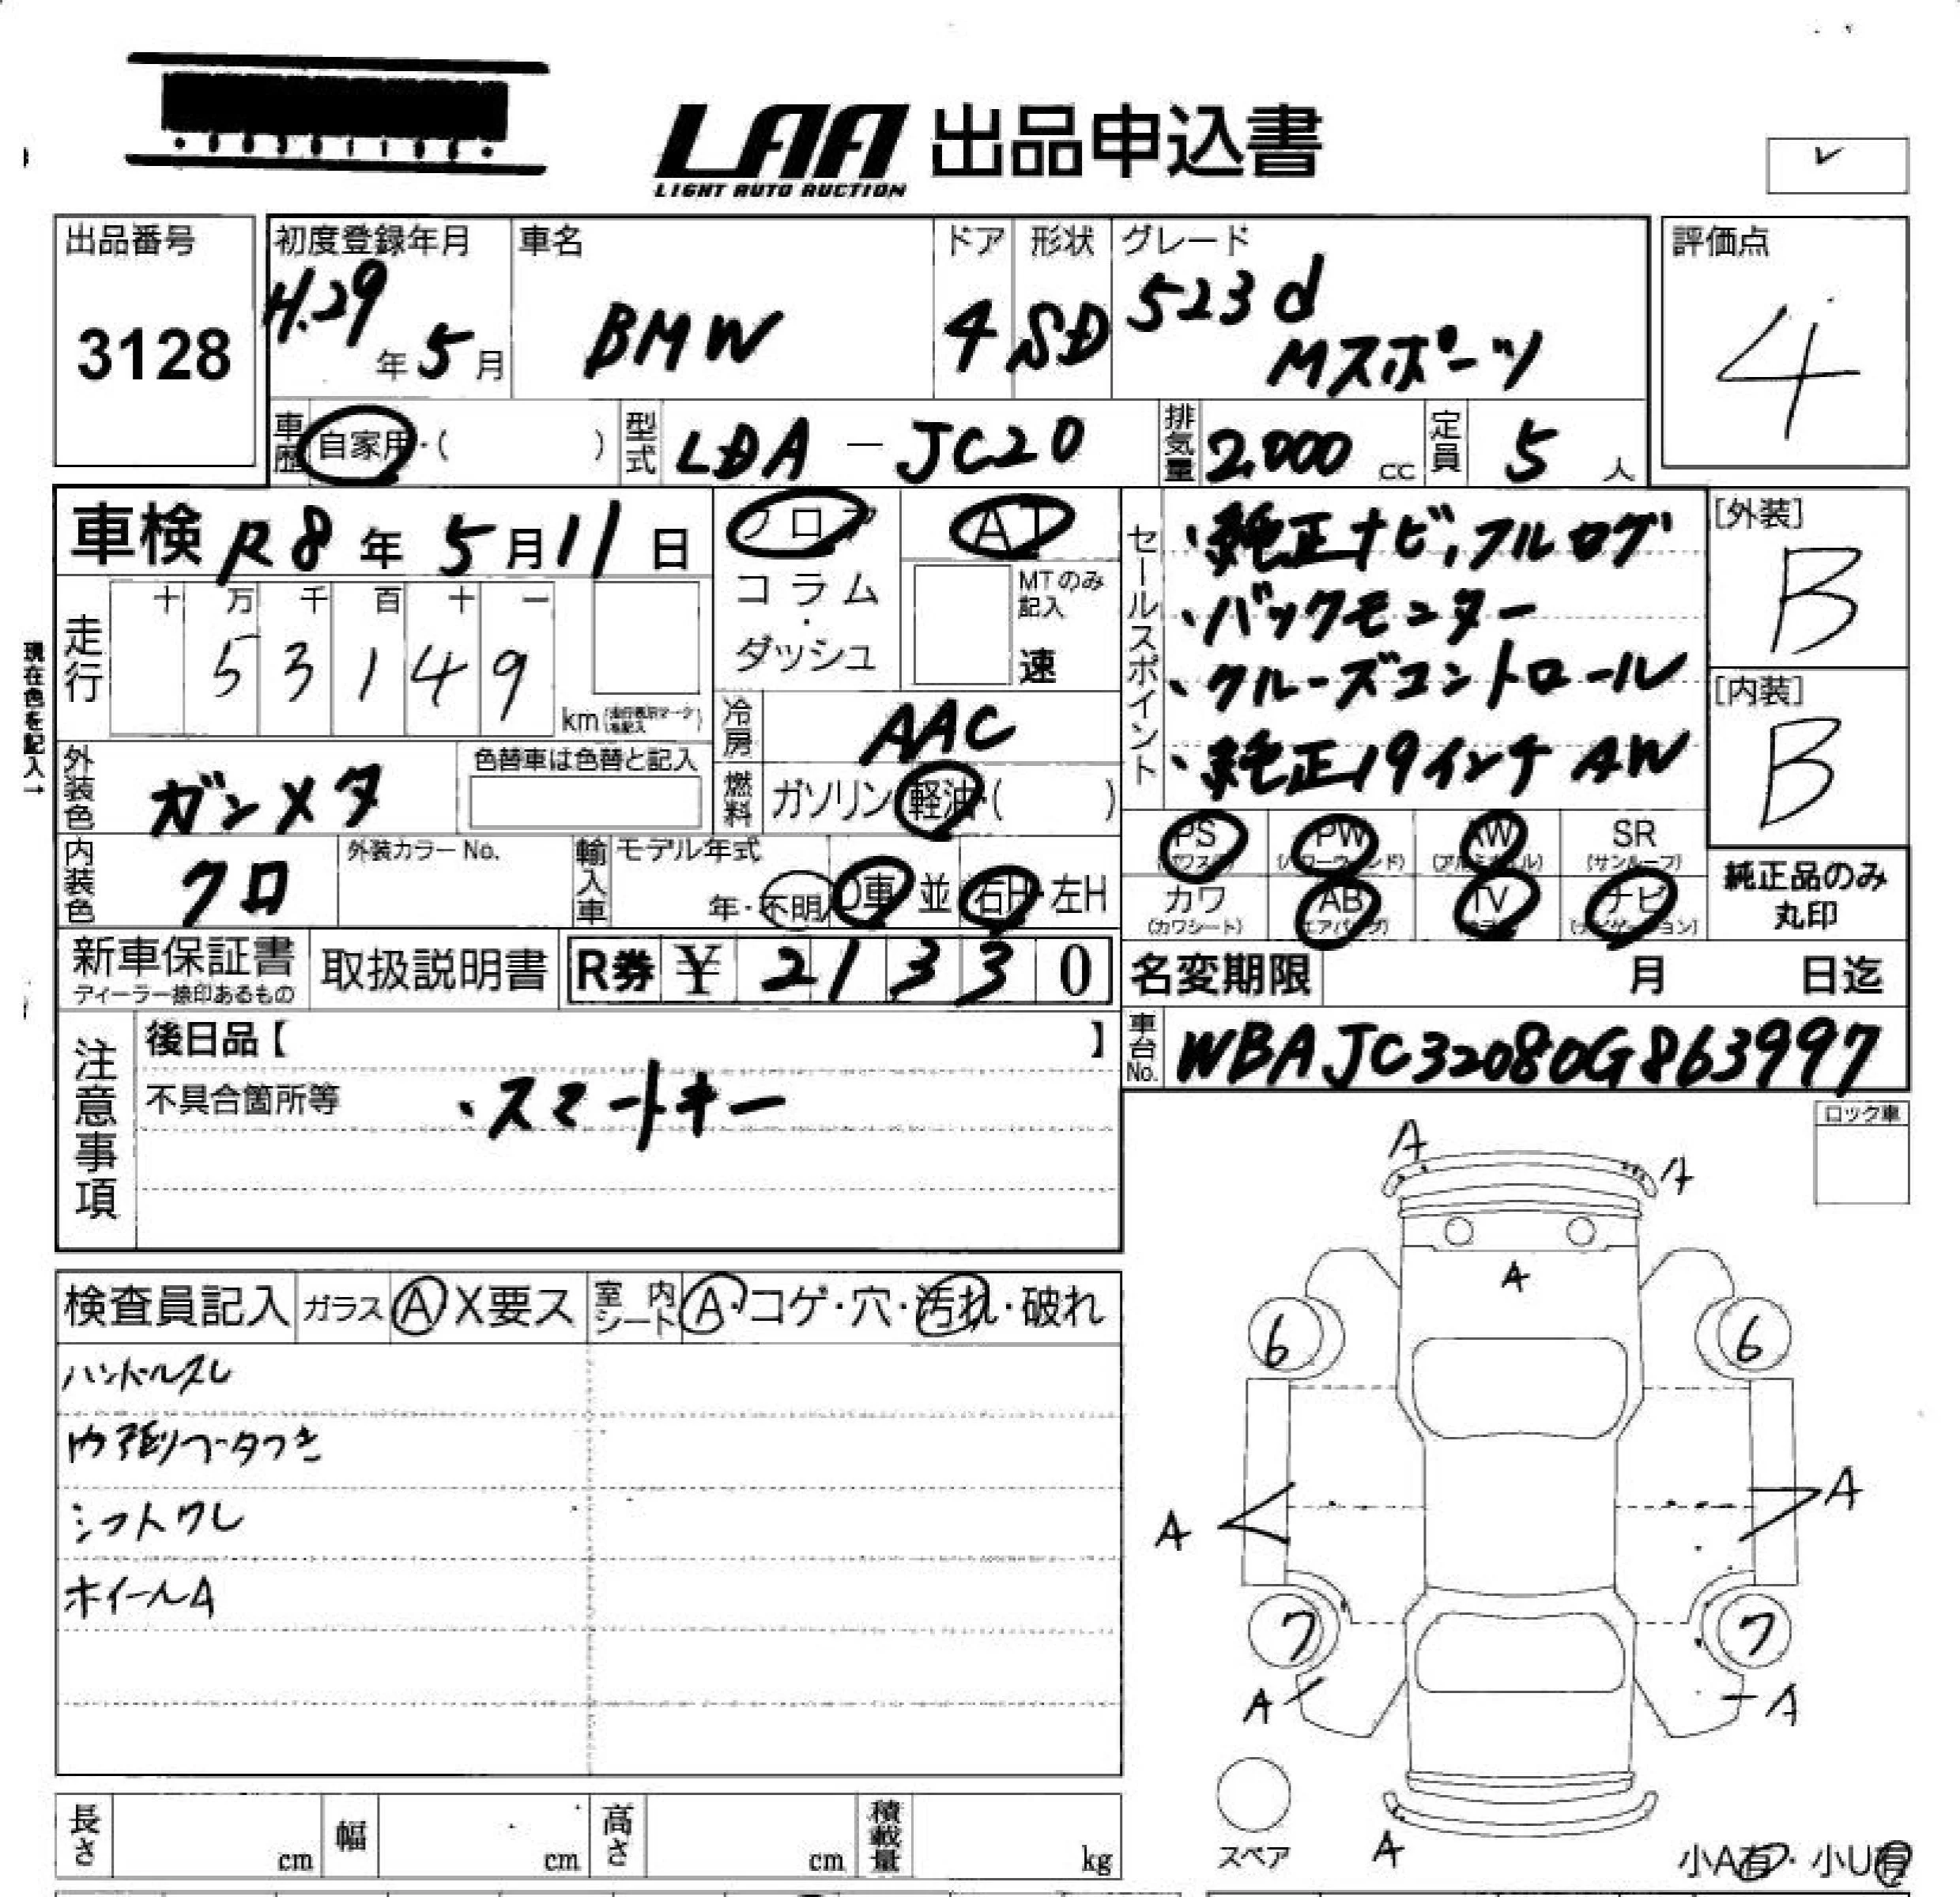 LAA 出品申込書
LIGHT AUTO AUCTION
出品番号
3128
初度登録年月
H.29年5月
車名
BMW
ドア
4
形状
SD
グレード
523d
Mスポーツ
評価点
4
車歴 自家用・( )
型式 LDA-JC20
排気量 2,000 cc
定員 5人
車検 R8年5月11日
フロア
コラム
・
ダッシュ
AT
MTのみ
記入
速
走行
十 万 千 百 十 一
5 3 1 4 9
km
現在色を記入→
冷房 AAC
燃料 ガソリン・軽油・( )
外装色 ガンメタ
色替車は色替と記入
内装色 クロ
外装カラーNo.
輸入車 モデル年式
年・不明 D車・並 右H・左H
セールスポイント
・純正ナビ、フルログ
・バックモニター
・クルーズコントロール
・純正19インチAW
[外装]
B
[内装]
B
PS (パワステ)
PW (パワーウィンド)
AW (アルミホイル)
SR (サンルーフ)
カワ (カワシート)
AB (エアバッグ)
TV (テレビ)
ナビ (ナビゲーション)
純正品のみ
丸印
新車保証書
ディーラー捺印あるもの
取扱説明書
R券 ¥ 21330
名変期限 月 日迄
車台No. WBAJC32080G863997
注意事項
後日品【 】
不具合箇所等
・スマートキー
ロック車
検査員記入
ガラス A X要ス
室内シート A・コゲ・穴・汚れ・破れ
ハンドルスレ
内張リフータつき
シフトワレ
ホイールA
A
A
A
6
6
A
A
7
7
A
A
A
スペア
小A有・小U有
長さ cm
幅 cm
高さ cm
積載量 kg